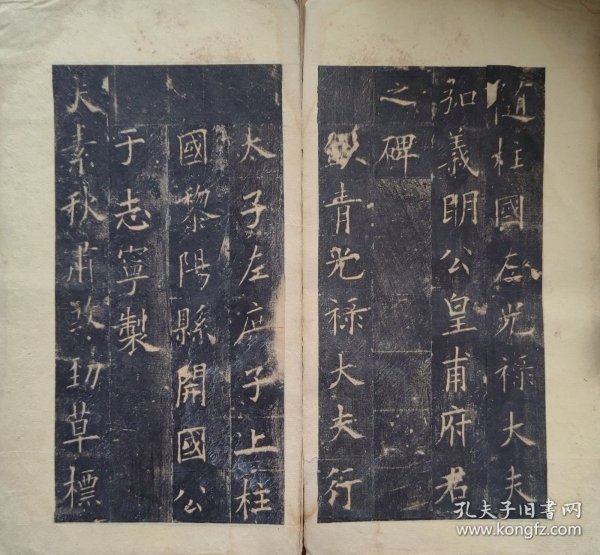 随柱國左光禄大夫
弘義明公皇甫府君
之碑
銀青光禄大夫行
太子左庶子上柱
國黎陽縣開國公
于志寧製
夫素秋肅煞勁草標
孔夫子旧书网
www.kongfz.com